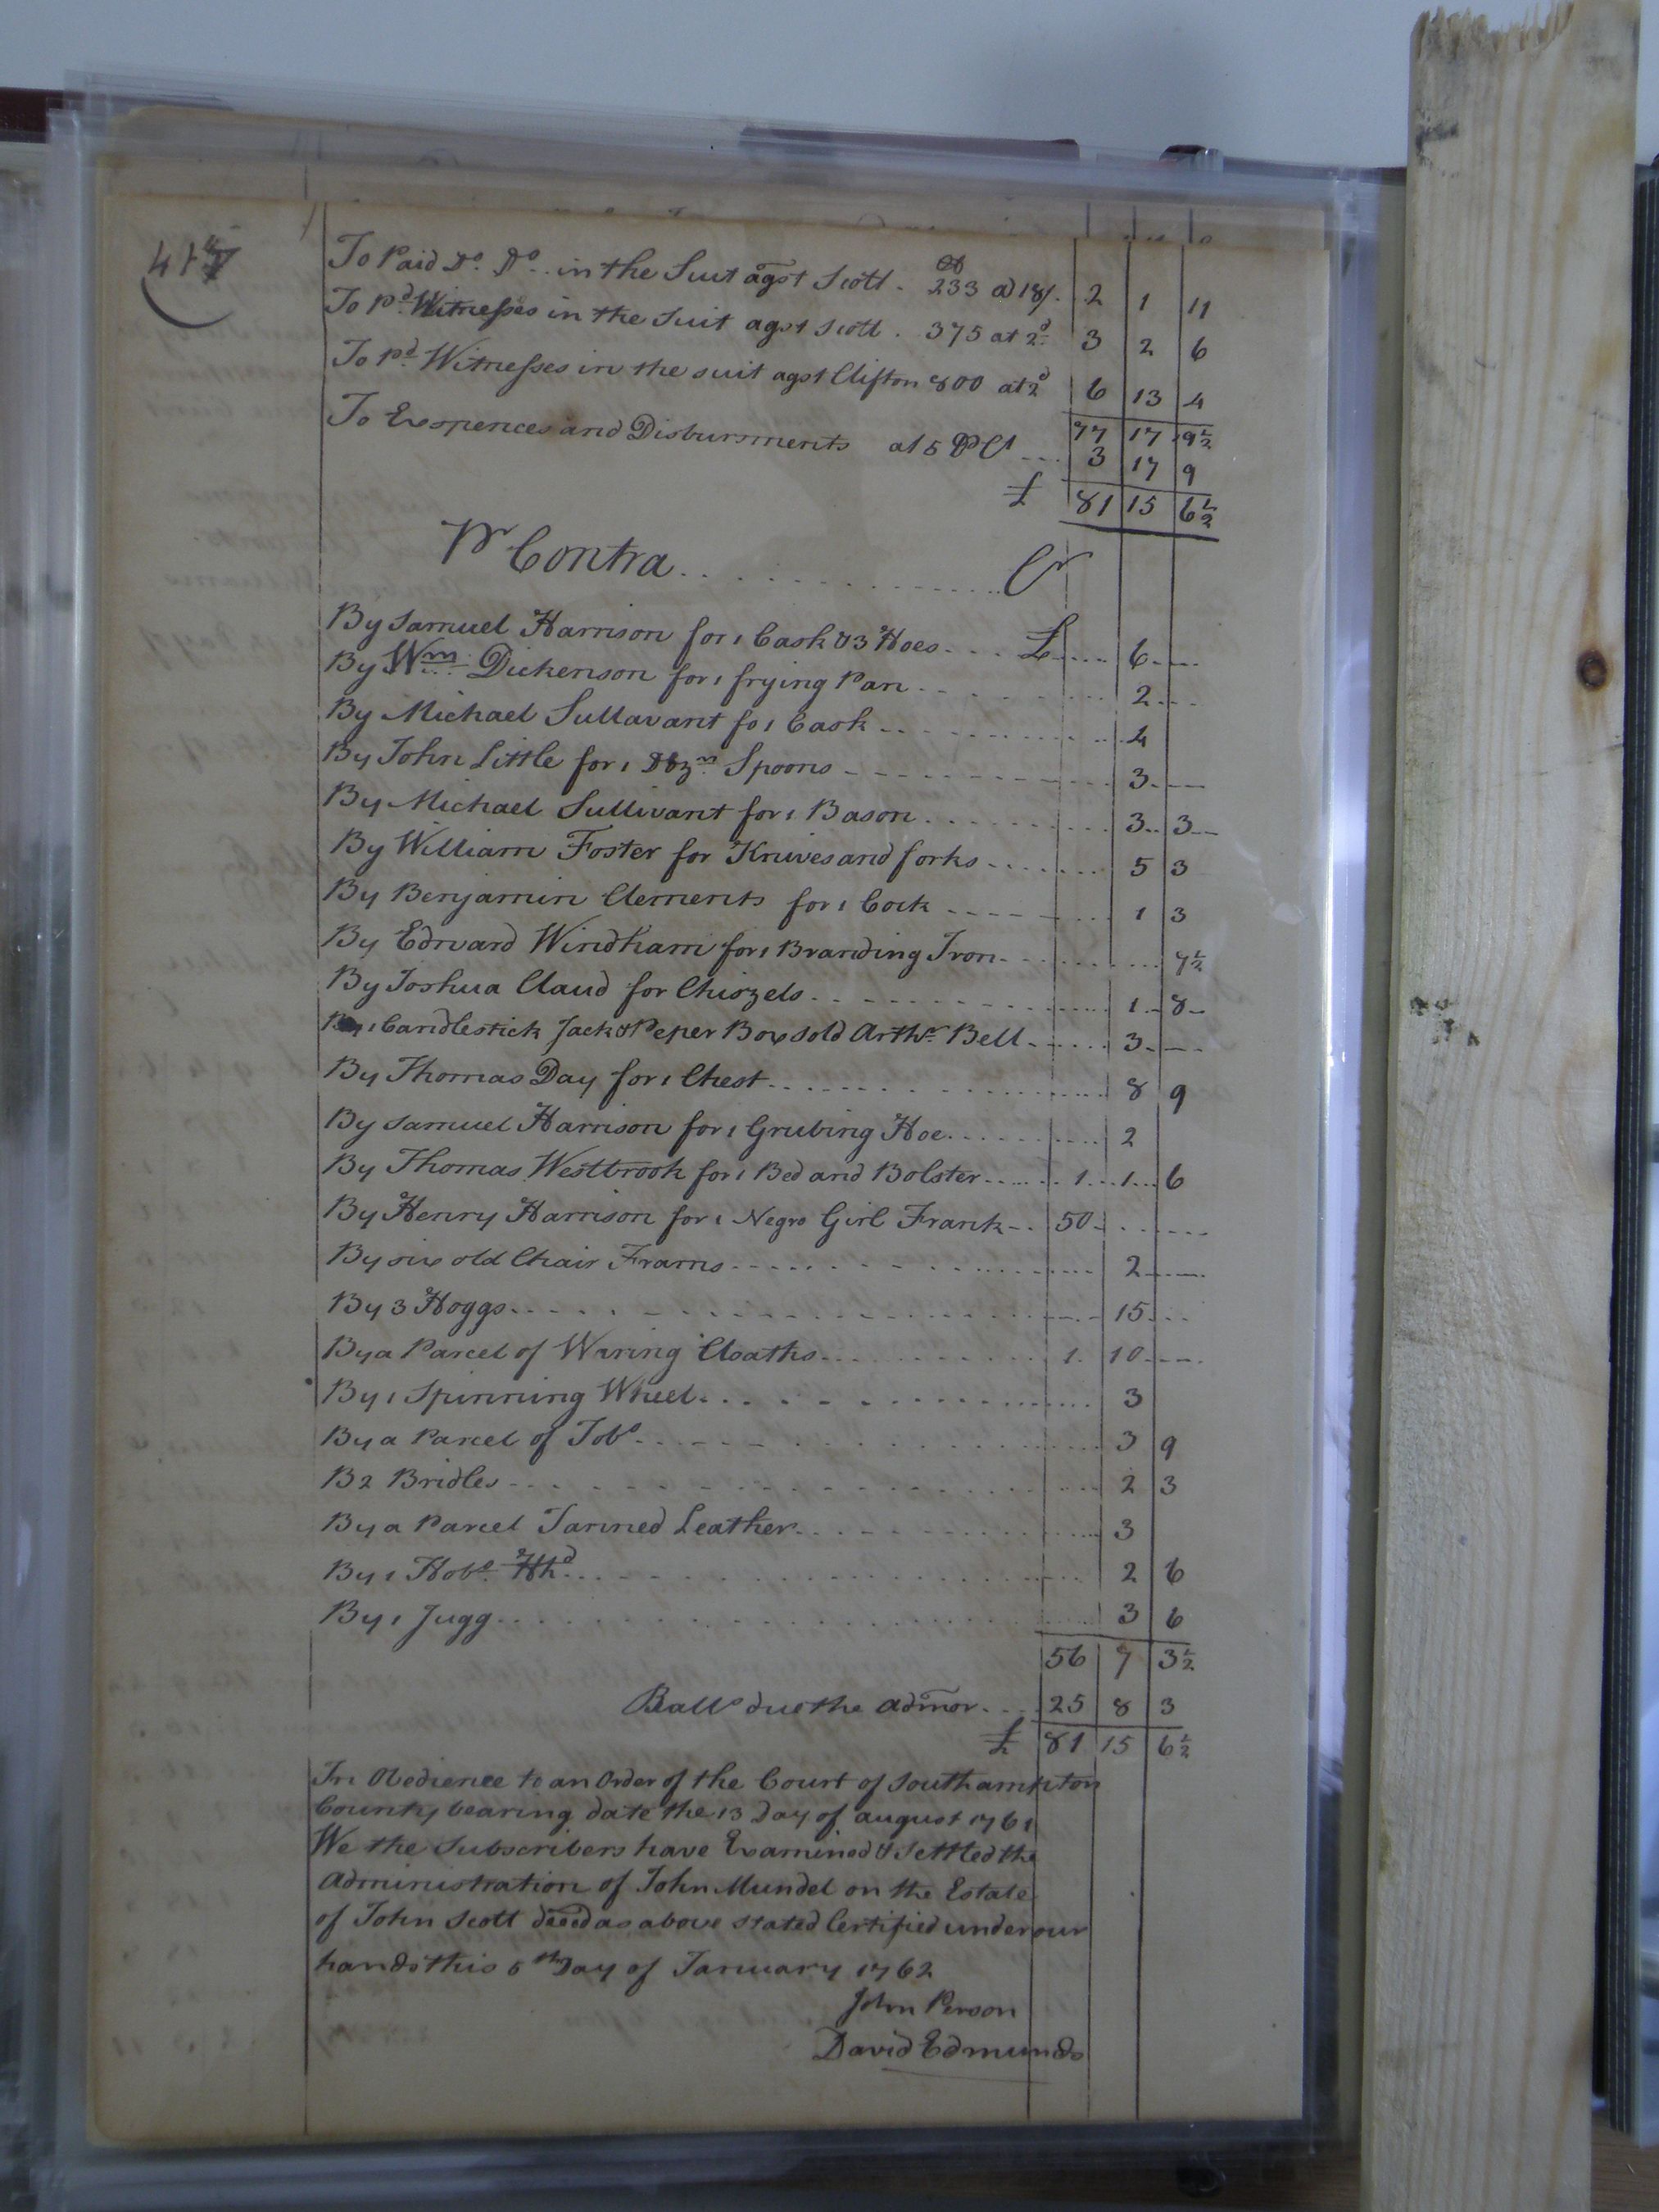 417
To Paid Do. Do. in the Suit agst Scott. 233 a 18/. 2 1 11
To Pd. Witnesses in the Suit agst Scott. 375 at 2d 3 2 6
To Pd. Witnesses in the suit agst Clifton 800 at 2d 6 13 4
77 17 9½
To Expences and Disbursments at 5 PCt 3 17 9
£ 81 15 6½
Pr Contra Cr
By Samuel Harrison for 1 Cask & 3 Hoes £ 6
By Wm. Dickenson for 1 frying Pan 2
By Michael Sullavant fo 1 Cask 4
By John Little for 1 Dozn. Spoons 3
By Michael Sullivant for 1 Bason 3 3
By William Foster for Knives and forks 5 3
By Benjamin Clements for 1 Cock 1 3
By Edward Windham for 1 Branding Iron 7½
By Joshua Claud for Chiszels 1 8
By 1 Candlestick Jack & Peper Box sold Arthr Bell 3
By Thomas Day for 1 Chest 8 9
By Samuel Harrison for 1 Grubing Hoe 2
By Thomas Westbrook for 1 Bed and Bolster 1 1 6
By Henry Harrison for 1 Negro Girl Frank 50
By six old Chair Frams 2
By 3 Hoggs 15
By a Parcel of Waring Cloaths 1 10
By 1 Spinning Wheel 3
By a Parcel of Tobo 3 9
B 2 Bridles 2 3
By a Parcel Tanned Leather 3
By 1 Hobo. Hhd 2 6
By 1 Jugg 3 6
56 7 3½
Balle due the admor 25 8 3
£ 81 15 6½
In Obedience to an Order of the Court of Southampton
County bearing date the 13 Day of august 1761
We the Subscribers have Examined & Settled the
administration of John Mundel on the Estate
of John Scott deced as above stated Certified under our
hands this 5th Day of January 1762
John Person
David Edmunds